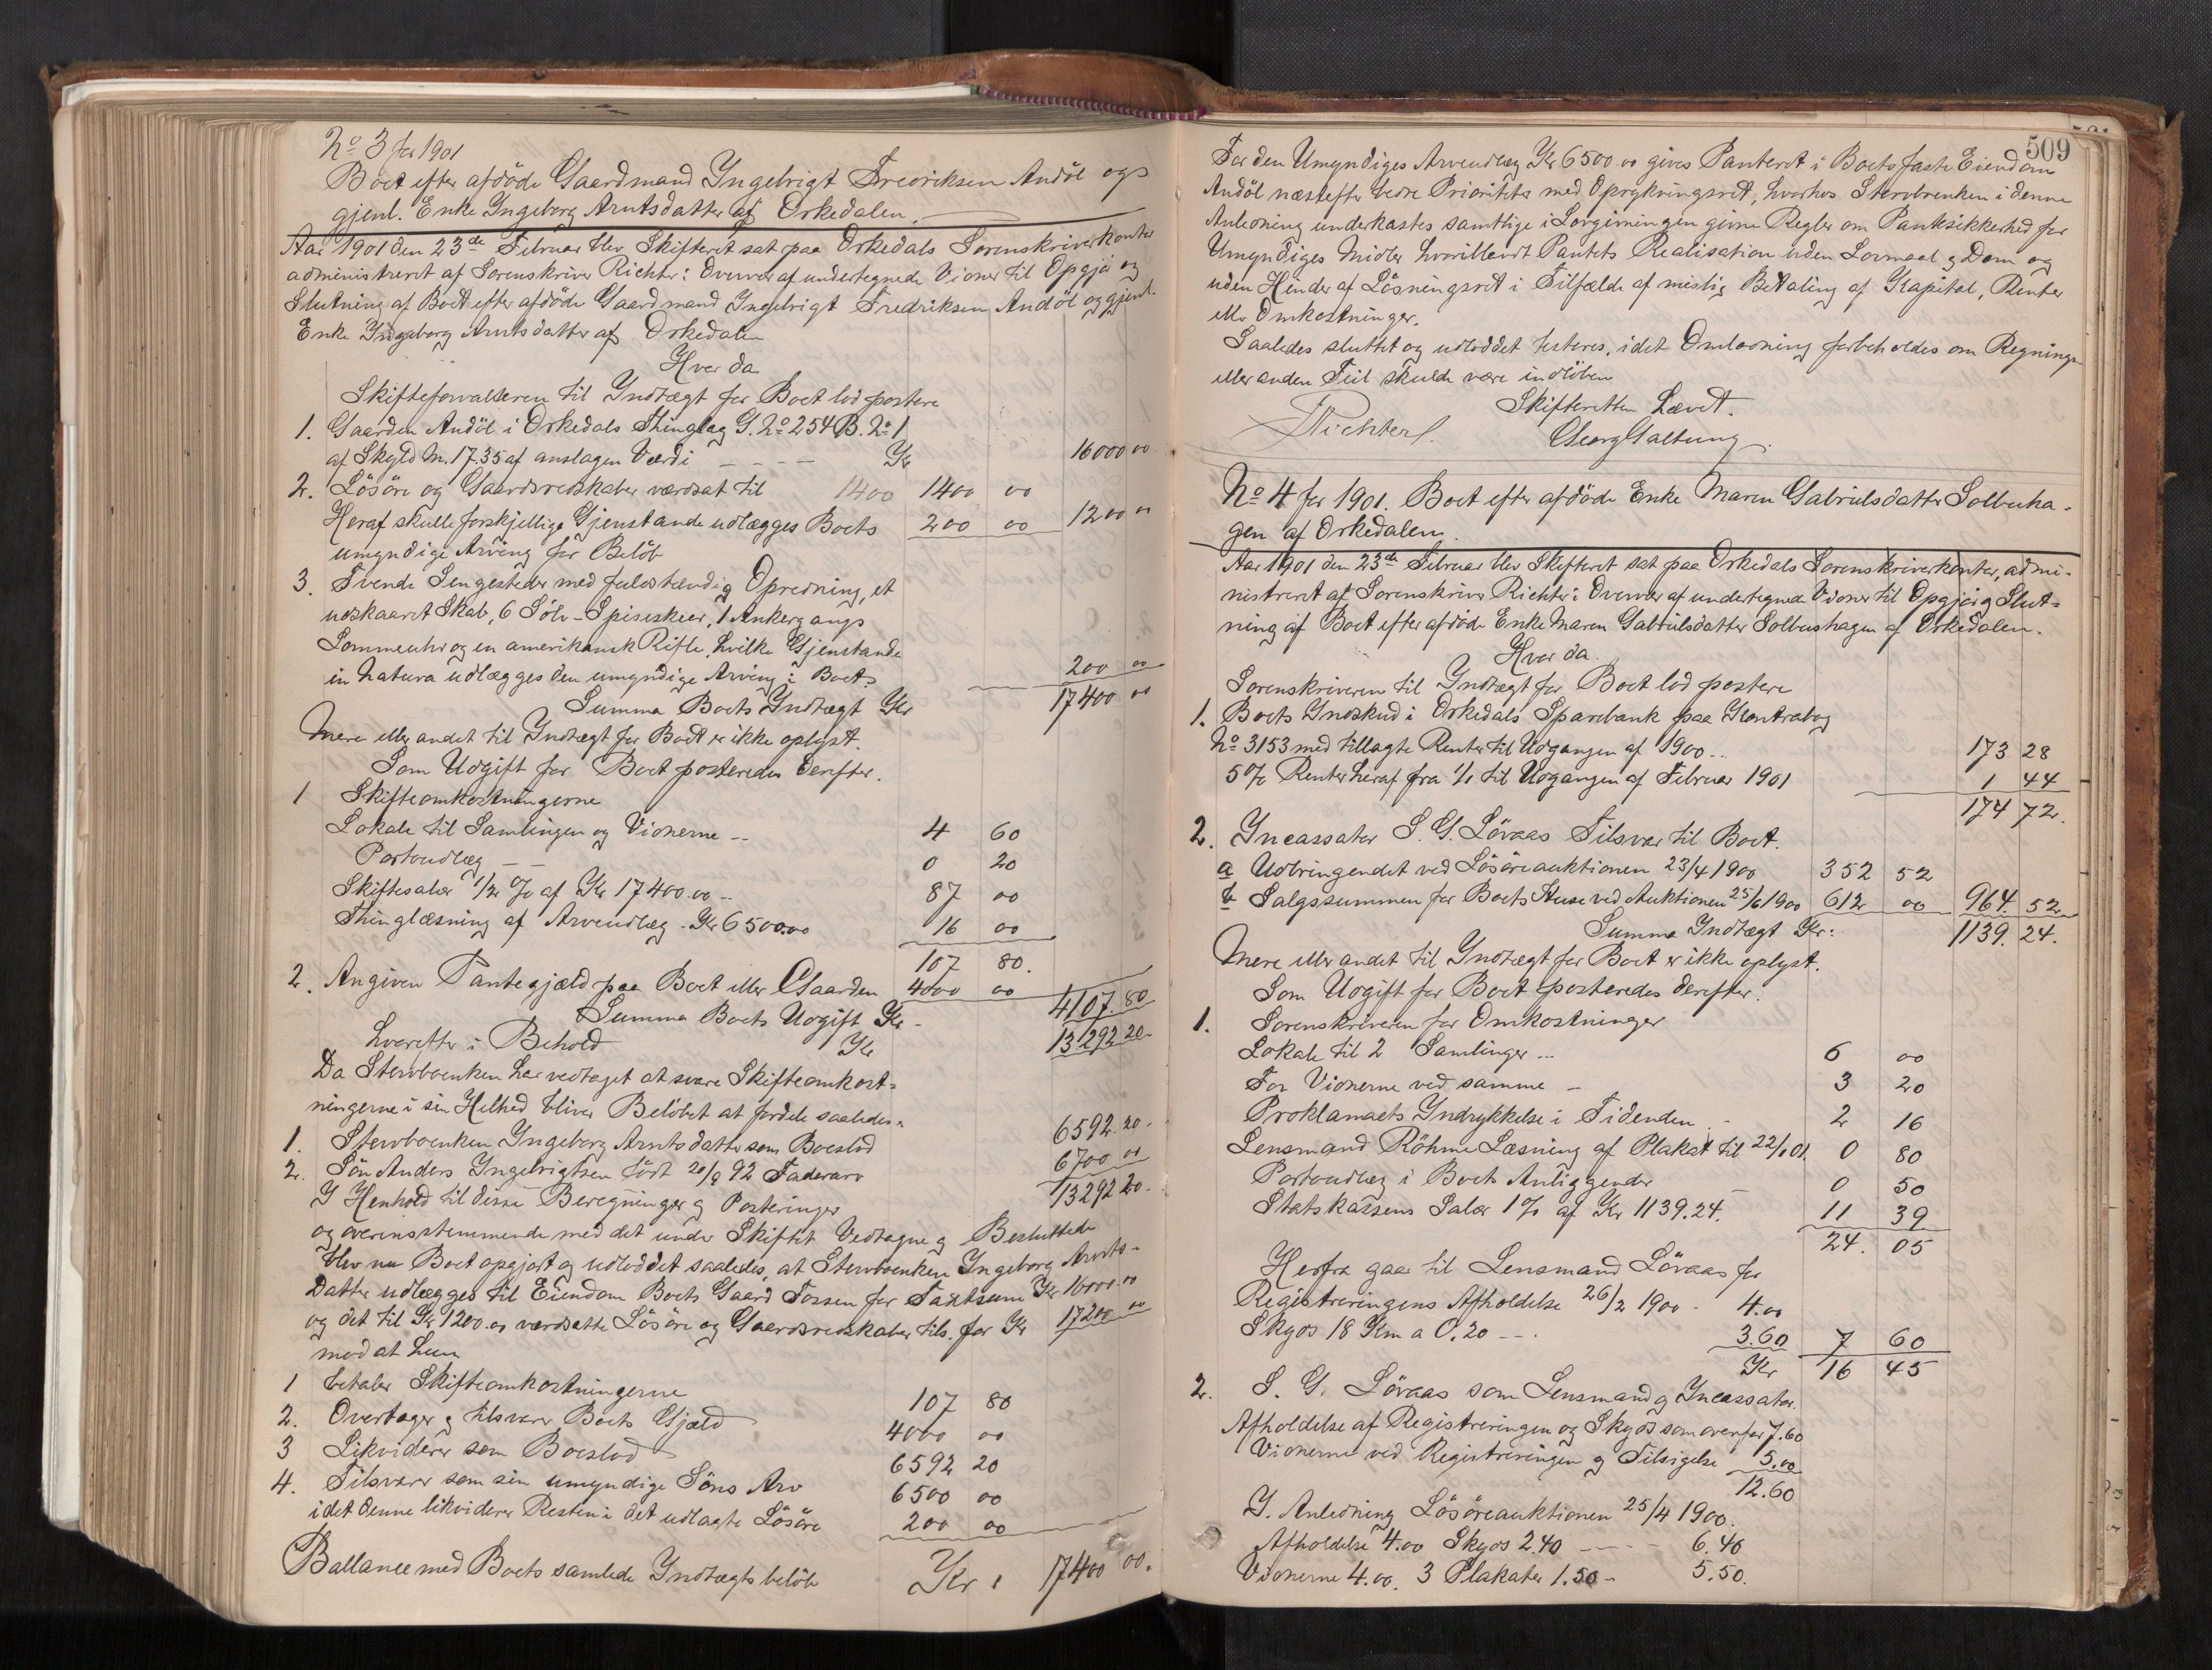 No 3 for 1901
Boet efter afdöde Gaardmand Ingebrigt Fredriksen Andöl og
gjenl. Enke Ingeborg Arntsdatter af Orkedalen.
Aar 1901 den 23de Februar blev Skifteret sat paa Orkedals Sorenskriverkontor
administreret af Sorenskriver Richter i Overvær af undertegnede Vidner til Opgjör og
Slutning af Boet efter afdöde Gaardmand Ingebrigt Fredriksen Andöl og gjenl.
Enke Ingeborg Arntsdatter af Orkedalen
Hvor da
Skifteforvalteren til Indtægt for Boet lod postere
1. Gaarden Andöl i Orkedals Thinglag G. No 254 B. No 1
af Skyld M. 17.35 af anslagen Værdi - - - - Kr 16000 00
2. Lösöre og Gaardsredskaber værdsat til 1400 1400 00
Heraf skulle forskjellige Gjenstande udlægges Boets 200 00 1200 00
umyndige Arving for Belöb
3. Tvende Sengesteder med fuldstændig Opredning, et
udskaaret Skab, 6 Sölv-Spiseskeer, 1 Ankergangs
Lommeuhr og en amerikansk Rifle, hvilke Gjenstande
in Natura udlægges den umyndige Arving i Boet. 200 00
Summa Boets Indtægt Kr 17400 00
Mere eller andet til Indtægt for Boet er ikke oplyst.
Som Udgift for Boet posteredes derefter.
1 Skifteomkostningerne
Lokale til Samlingen og Vidnerne -- 4 60
Portoudlæg -- 0 20
Skiftesalær 1/2 % af Kr 17400.00 -- 87 00
Thinglæsning af Arveudlæg - Kr 6500.00 16 00
107 80.
2. Angiven Pantegjæld paa Boet eller Gaarden 4000 00
Summa Boets Udgift Kr - 4107.80
hvorefter i Behold Kr 13292 20-
Da Stervboenken har vedtaget at svare Skifteomkost-
ningerne i sin Helhed bliver Belöbet at fordele saaledes:
1. Stervboenken Ingeborg Arntsdatter som Boeslod 6592.20.
2. Sön Anders Ingebrigtsen född 20/9 92 Faderarv 6700 00
I Henhold til disse Beregninger og Posteringer 13292 20.
og overensstemmende med det under Skiftet Vedtagne og Besluttede
blev nu Boet opgjort og udloddet saaledes, at Stervboenken Ingeborg Arnts-
Datter udlægges til Eiendom Boets Gaard Fossen for Taxtsum Kr 16000.00
og det til Kr 1200.00 værdsatte Lösöre og Gaardsredskaber tils. for Kr 17200 00
mod at hun
1 betaler Skifteomkostningerne 107 80
2. Overtager og tilsvarer Boets Gjæld 4000 00
3 Likviderer som Boeslod 6592 20
4. Tilsvarer som sin umyndige Söns Arv 6500 00
idet denne likviderer Resten i det udlagte Lösöre 200 00
Ballance med Boets samlede Indtægts belöb Kr. 17400 00.
509
For den Umyndiges Arveudlæg Kr 6500.00 gives Panteret i Boets faste Eiendom
Andöl næstefter bedre Prioriteter med Oprykningsret, hvorhos Stervboenken i denne
Anledning underkastes samtlige i Lovgivningen givne Regler om Pantsikkerhed for
Umyndiges Midler hvoriblandt Pantets Realisation uden Lovmaal og Dom og
uden Hinder af Lösningsret i Tilfælde af mislig Betaling af Kapital, Renter
eller Omkostninger.
Saaledes sluttet og udloddet testeres, idet Omlodning forbeholdes om Regnings-
eller anden Feil skulde være indlöben
Skifteretten Hævet.
Richter. Georg Galtung.
No 4 for 1901. Boet efter afdöde Enke Maren Gabrielsdatter Solbusha-
gen af Orkedalen.
Aar 1901 den 23de Februar blev Skifteret sat paa Orkedals Sorenskriverkontor, admi-
nistreret af Sorenskriver Richter i Overvær af undertegnede Vidner til Opgjör og Slut-
ning af Boet efter afdöde Enke Maren Gabrielsdatter Solbushagen af Orkedalen.
Hvor da.
Sorenskriveren til Indtægt for Boet lod postere
1. Boets Indskud i Orkedals Sparebank paa Kontrabog
No 3153 med tillagte Renter til Udgangen af 1900 -- 173 28
5 % Renter heraf fra 1/1 til Udgangen af Februar 1901 1 44
174 72.
2. Incassator S. G. Lövaas Tilsvar til Boet.
a Udbringendet ved Lösöreauktionen 23/4 1900 352 52
b Salgssummen for Boets Huse ved Auktionen 25/6 1900 612 00 964. 52
Summa Indtægt Kr: 1139. 24.
Mere eller andet til Indtægt for Boet er ikke oplyst.
Som Udgift for Boet posteredes derefter.
1. Sorenskriveren for Omkostninger
Lokale til 2 Samlinger -- 6 00
For Vidnerne ved samme - 3 20
Proklamaets Indrykkelse i Tidenden - 2 16
Lensmand Röhme Læsning af Plakat til 22/1 01 0 80
Portoudlæg i Boets Anliggender - 0 50
Statskassens Salær 1 % af Kr 1139.24. 11 39
24. 05
Herfra gaar til Lensmand Lövaas for
Registreringens Afholdelse 26/2 1900 - 4.00
Skyds 18 Km a 0.20 -- 3.60 7 60
Kr 16 45
2. S. G. Lövaas som Lensmand og Incassator.
Afholdelse af Registreringen og Skyds som ovenfor 7.60
Vidnerne ved Registreringen og Tilsigelse 5.00
12.60
I Anledning Lösöreauktionen 25/4 1900.
Afholdelse 4.00 Skyds 2.40 ---- 6.40
Vidnerne 4.00. 3 Plakater 1.50 - 5.50.